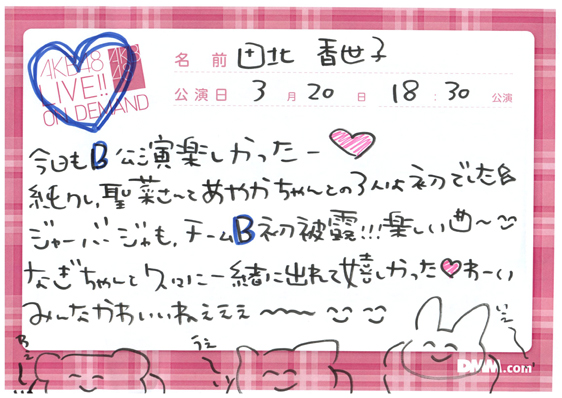 AKB48
LIVE!!
ON DEMAND
AKB48
名前 田北 香世子
公演日 3月20日 18:30 公演
今日もB公演楽しかったー
純クし,聖菜さんてあやかちゃんとの3人は初でした
ジャーバージャも,チームB初披露!!!楽しい〜
なぎちゃんと久々に一緒に出れて嬉しかった わーい
みんなかわいいねえええ〜〜
DMM.com